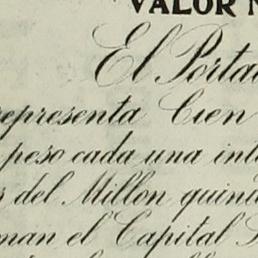 VALOR N
El Porta
representa Cien
peso cada una int
del Millon quin
man el Capital